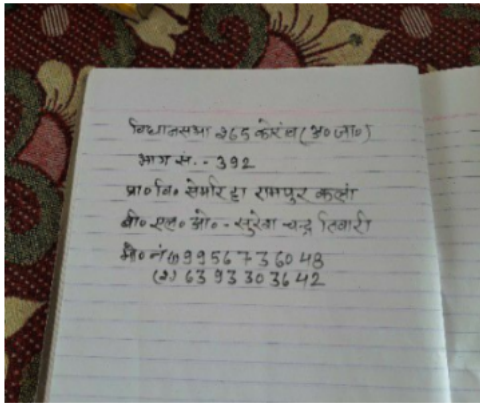 विधानसभा 265 कोरांव (अ०जा०)
भाग सं. - 392
प्रा० वि० सेमरिहा रामपुर कलां
बी० एल० ओ० - सुरेश चन्द्र तिवारी
मो० नं (1) 9956736048
(2) 6393303642